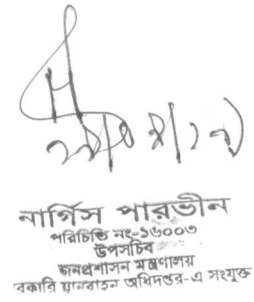 নার্গিস পারভীন
পরিচিতি নং-১৬০০৩
উপসচিব
জনপ্রশাসন মন্ত্রণালয়
সরকারি যানবাহন অধিদপ্তর-এ সংযুক্ত